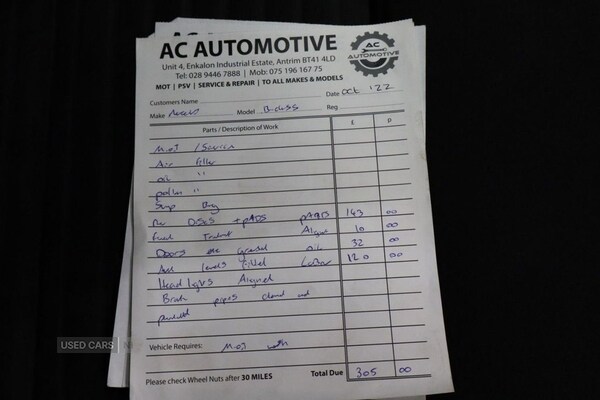 AC AUTOMOTIVE
Unit 4, Enkalon Industrial Estate, Antrim BT41 4LD
Tel: 028 9446 7888 | Mob: 075 196 167 75
MOT | PSV | SERVICE & REPAIR | TO ALL MAKES & MODELS
AC
AUTOMOTIVE
Customers Name Date Oct '22
Make Model B-class Reg
Parts / Description of Work £ P
M.O.T / Service
Air filter
oil "
pollen "
Sump
Discs + PADS 143 00
fuel 10 00
Doors oil 32 00
All levels 120 00
Head lights Aligned
Brake pipes and
Vehicle Requires: M.O.T
Please check Wheel Nuts after 30 MILES Total Due 305 00
USED CARS